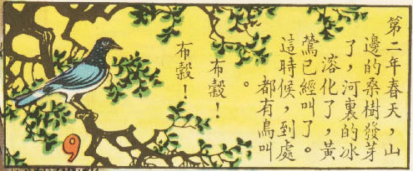 第二年春天，山
邊的桑樹發芽
了，河裏的冰
溶化了，黃
鶯已經叫了。
這時候，到處
都有鳥叫
。
布穀！
布穀！
9